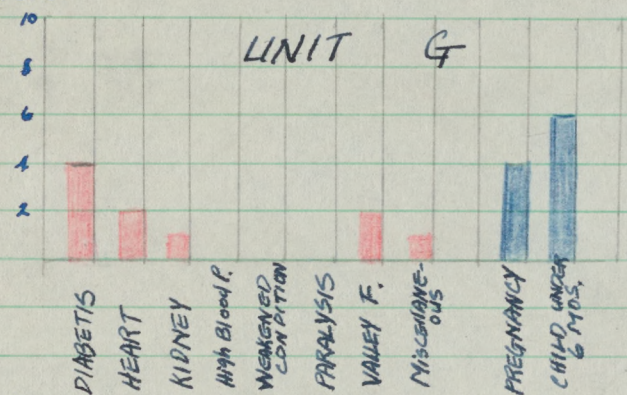 UNIT G
10
8
6
4
2
DIABETIS
HEART
KIDNEY
High Blood P.
WEAKENED
CONDITION
PARALYSIS
VALLEY F.
MISCELLANE-
OUS
PREGNANCY
CHILD UNDER
6 MOS.